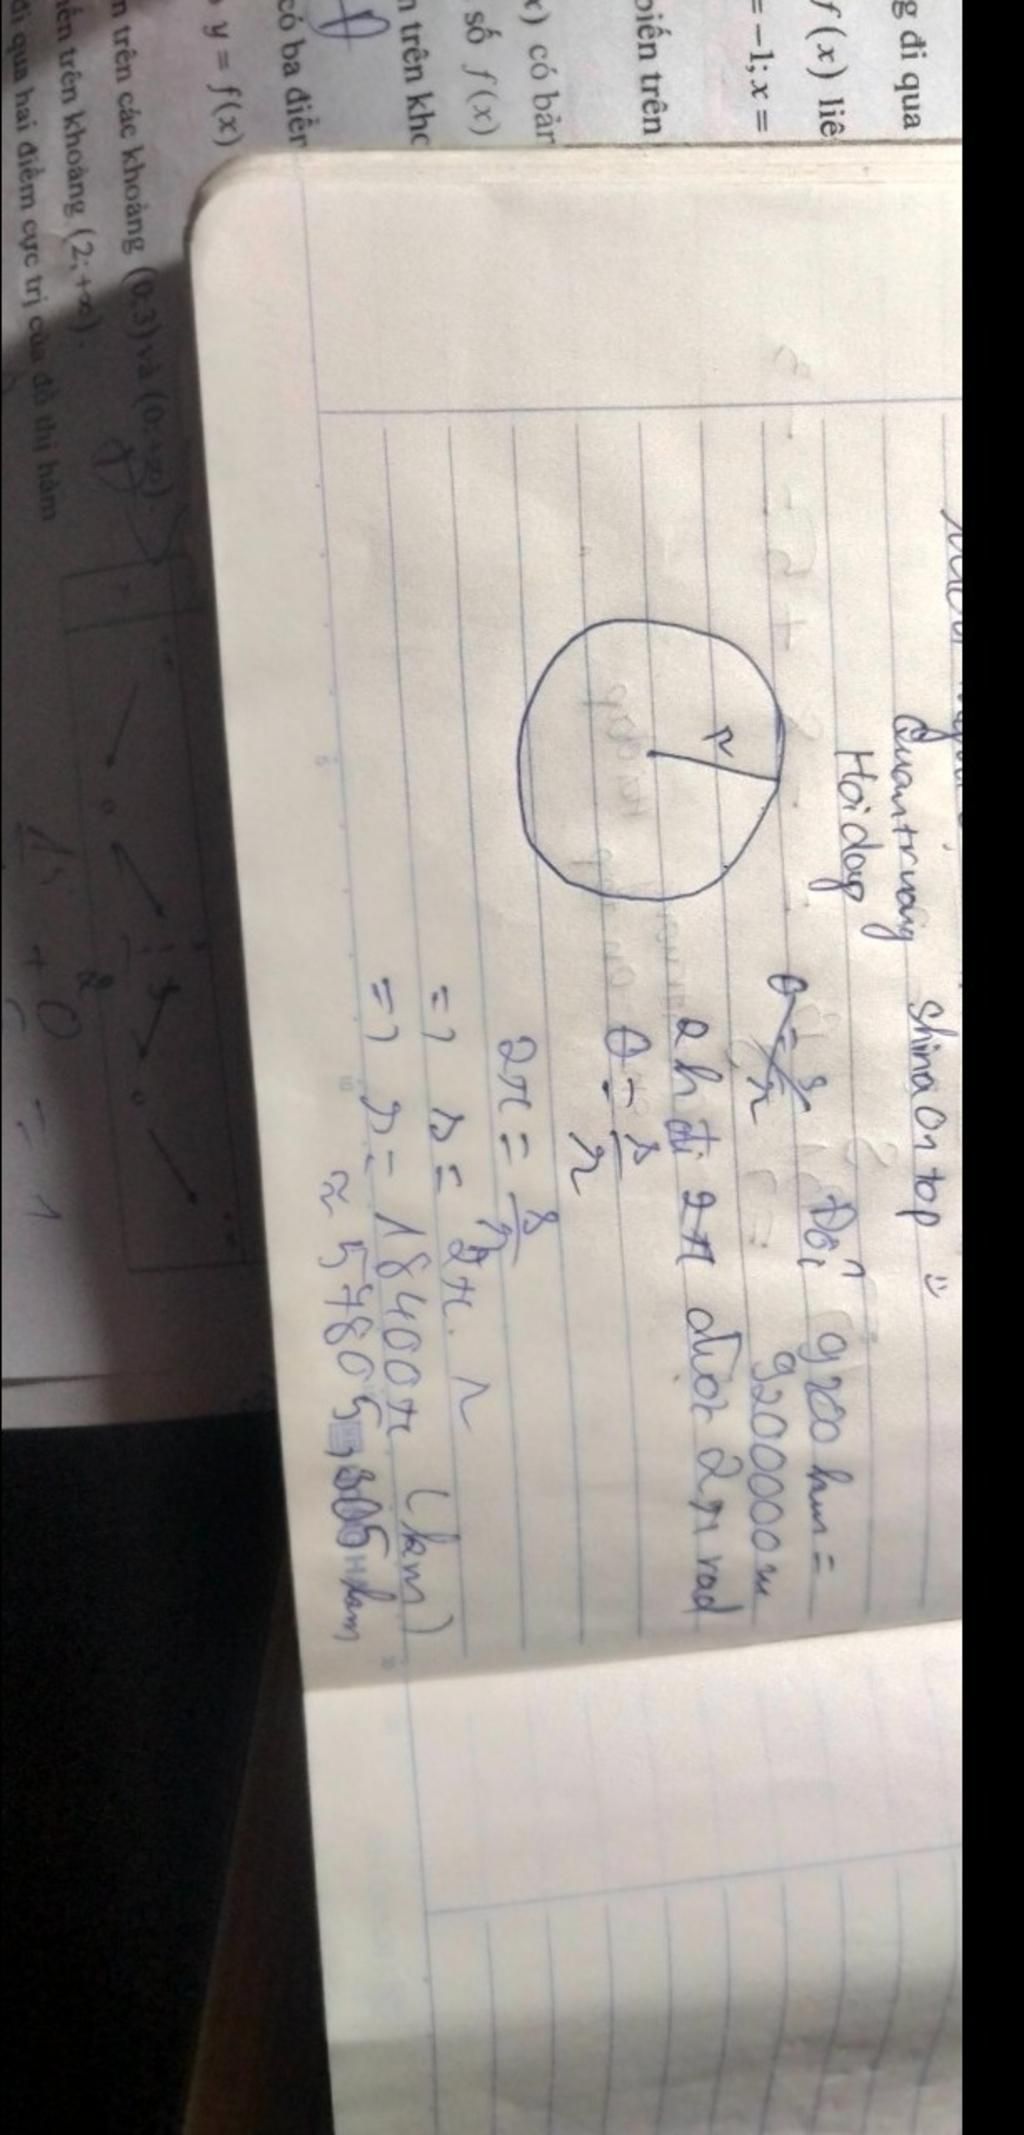 g đi qua
f(x) liê
= −1; x =
biến trên
x) có bản
số f(x)
n trên kho
có ba điển
y = f(x)
n trên các khoảng (0;3) và (0;+∞).
iến trên khoảng (2;+∞).
đi qua hai điểm cực trị của đồ thị hàm
Quantruong Shina On top
Hoidap
θ = s/r Đổi 9200 km =
9200000 m
2h đi 2π được 2π rad
r
θ = s/r
2π = s/r
=> s = 2π . r
=> s = 18400π (km)
≈ 57805,305 km